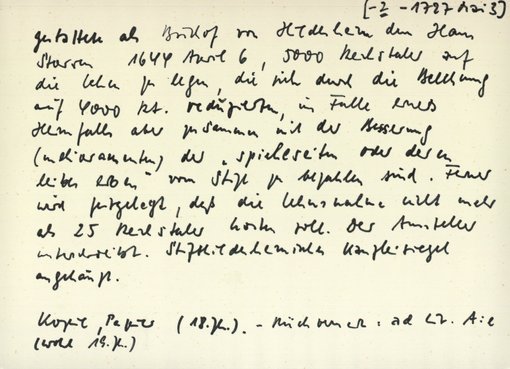 [-2 - 1727 Mai 3]
gestattete als Bischof von Hildesheim den Herrn
1644 April 6, 5000 Reichstaler auf
die Lehen zu legen, die sich durch die Belehnung
auf 4000 Rt. reduzierten, im Falle eines
Heimfalls aber zusammen mit der Besserung
(melioramenten) der "Spiegelseiten oder deren
leibes erben" vom Stift zu bezahlen sind. Ferner
wird festgelegt, daß die Lehnsnahme nicht mehr
als 25 Reichstaler kosten soll. Der Aussteller
unterschreibt. Stifthildesheimisches Kanzleisiegel
angehängt.
Kopie, Papier (18. Jh.). - Rückvermerk: ad
(wohl 19. Jh.)